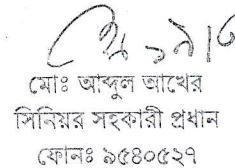 মোঃ আব্দুল আখের
সিনিয়র সহকারী প্রধান
ফোনঃ ৯৫৪০৫২৭